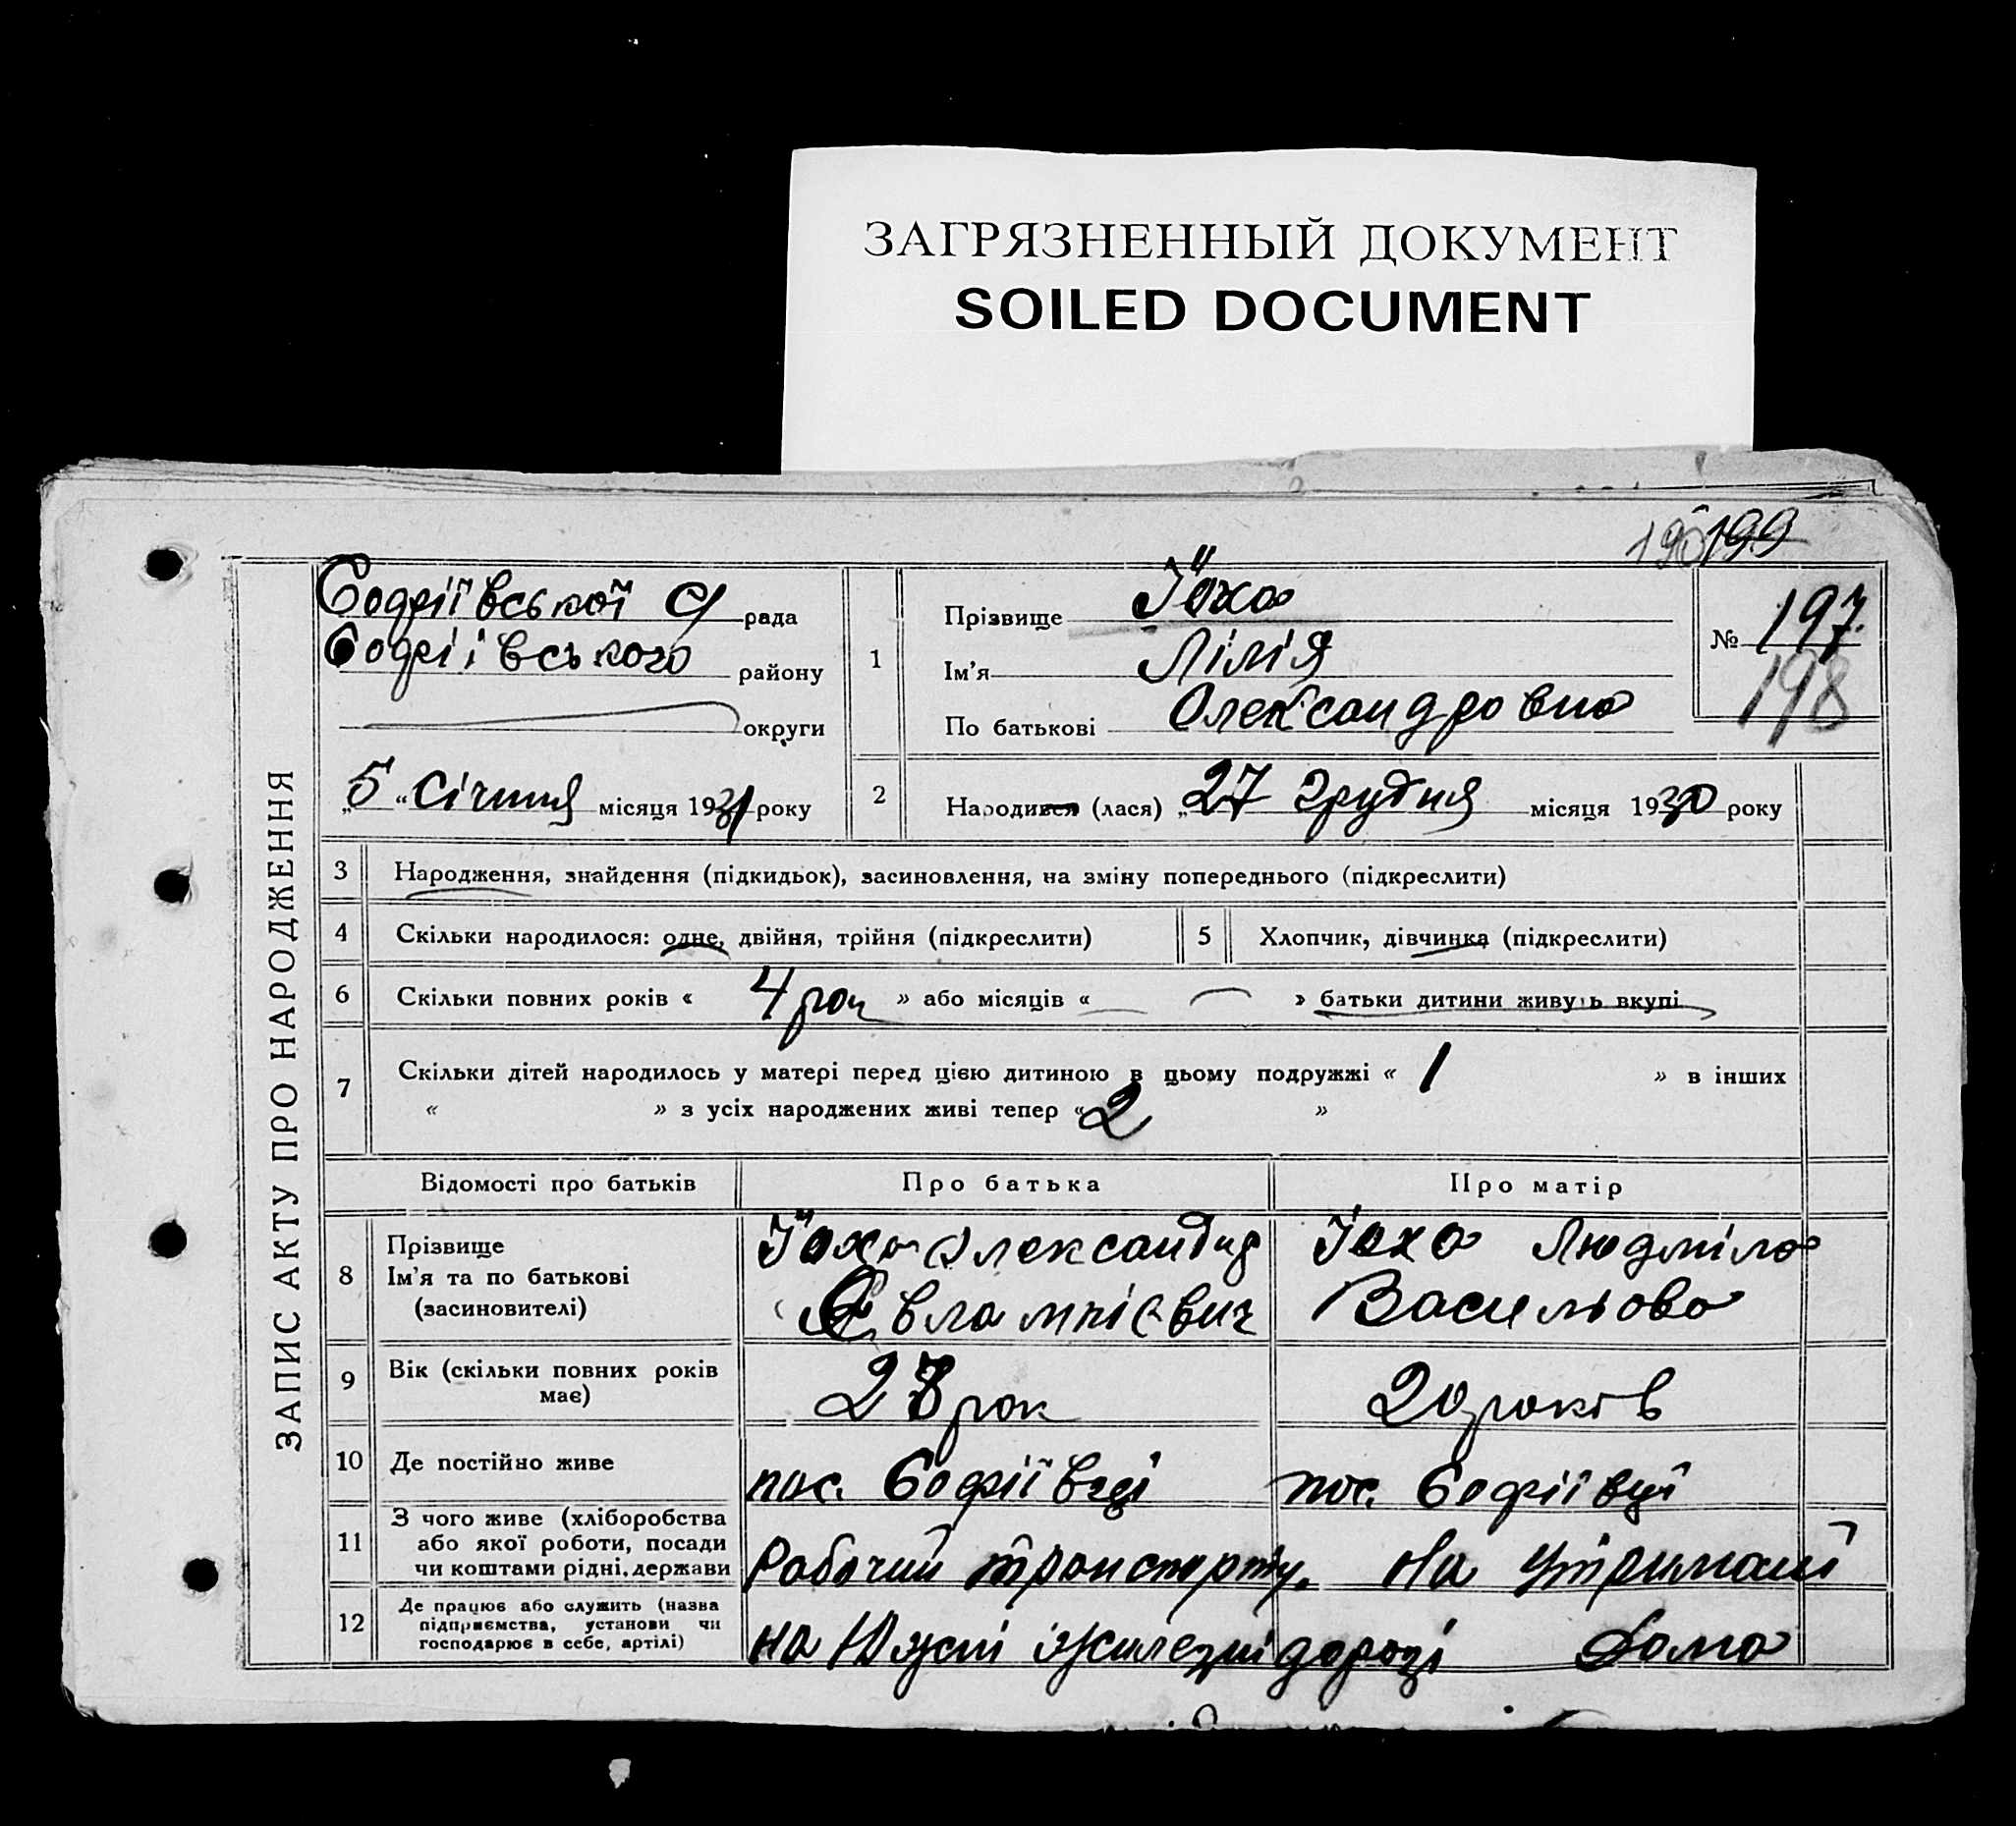 ЗАГРЯЗНЕННЫЙ ДОКУМЕНТ
SOILED DOCUMENT
199
ЗАПИС АКТУ ПРО НАРОДЖЕННЯ
Софіївської С/рада
Софіївського району
округи
„5“ Січння місяця 1931 року
1
Прізвище Їоха
Ім'я Лілія
По батькові Олександровна
№ 197.
198
2 Народився (лася) „27 Грудня місяця 1930 року
3 Народження, знайдення (підкидьок), засиновлення, на зміну попереднього (підкреслити)
4 Скільки народилося: одне, двійня, трійня (підкреслити)
5 Хлопчик, дівчинка (підкреслити)
6 Скільки повних років « 4 рок » або місяців « » батьки дитини живуть вкупі
7 Скільки дітей народилось у матері перед цією дитиною в цьому подружжі « 1 » в інших
« » з усіх народжених живі тепер « 2 »
Відомості про батьків Про батька Про матір
8 Прізвище Їоха Олександр Їоха Людміла
Ім'я та по батькові
(засиновителі) Євлампієвич Васильова
9 Вік (скільки повних років має) 28 рок 20 років
10 Де постійно живе пос. Софіївці пос. Софіївці
11 З чого живе (хліборобства
або якої роботи, посади
чи коштами рідні, держави Рабочий транспорту. На утримані
12 Де працює або служить (назва
підприємства, установи чи
господарює в себе, артілі) на Южні желеzні дорозі Дома